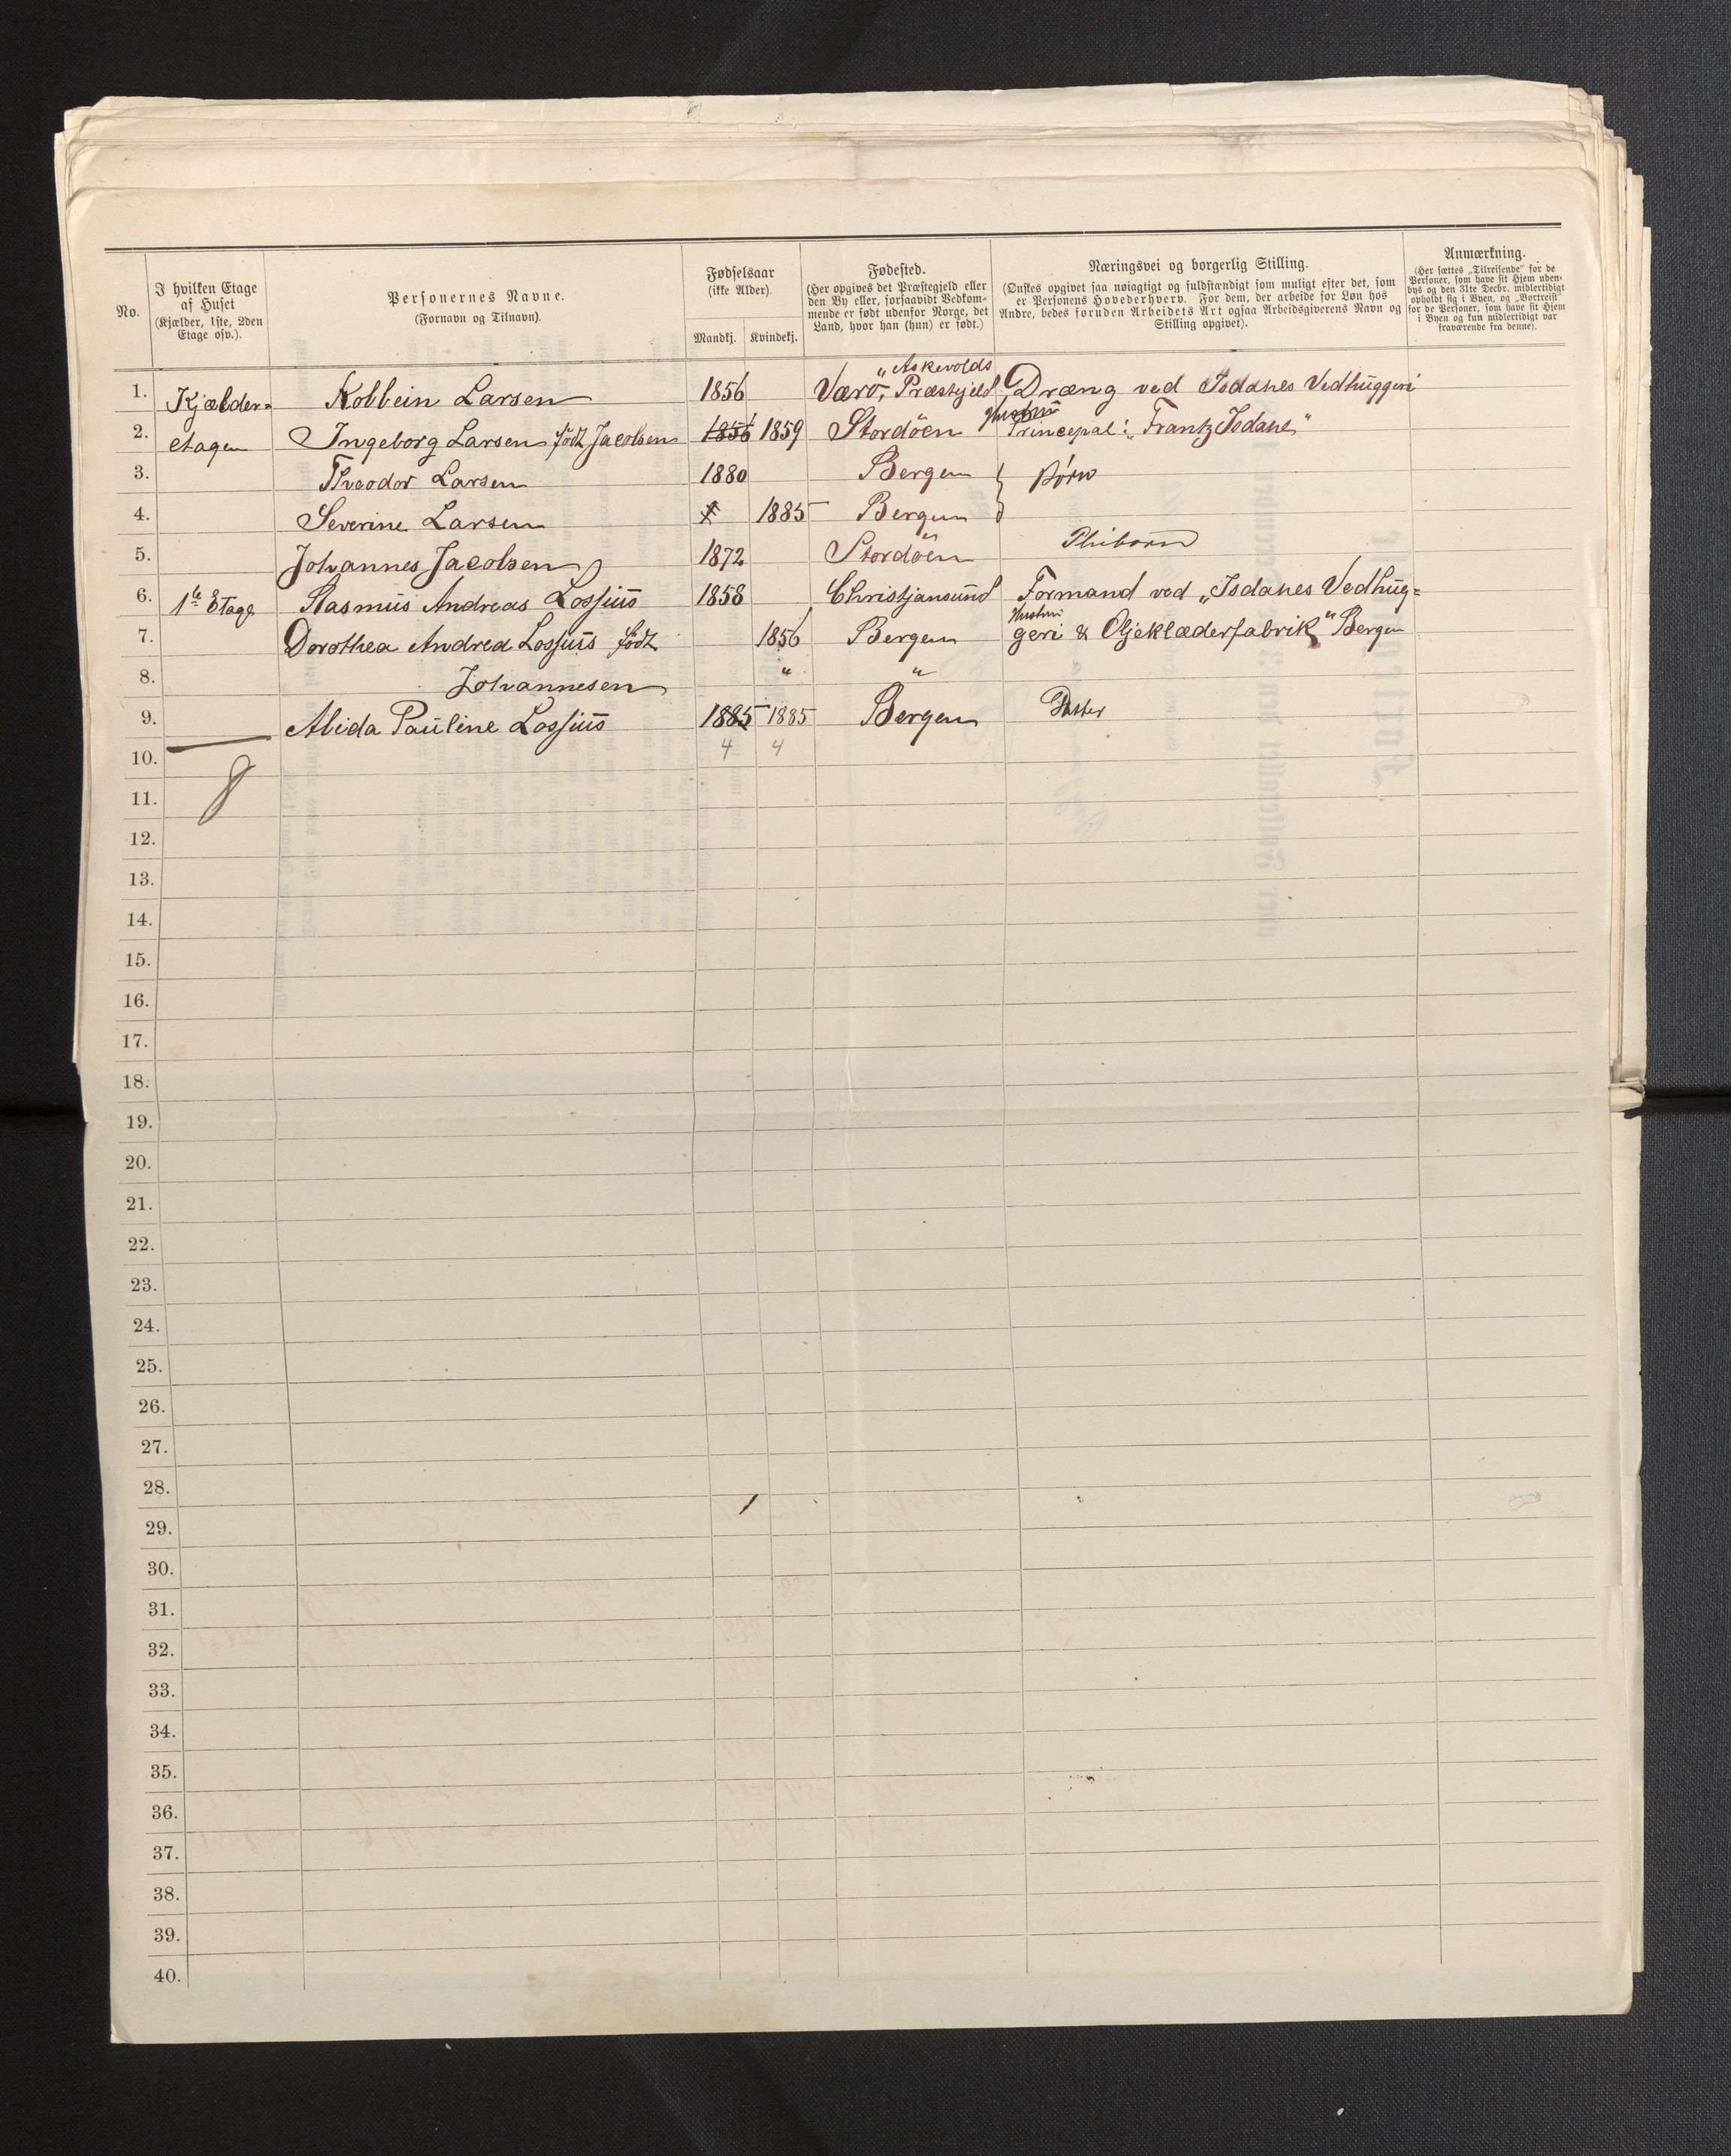 No.
I hvilken Etage af Huset (Kjælder, 1ste, 2den Etage osv.).
Personernes Navne. (Fornavn og Tilnavn).
Fødselsaar (ikke Alder).
Mandkj. Kvindekj.
Fødested. (Her opgives det Præstegjeld eller den By eller, forsaavidt Vedkommende er født udenfor Norge, det Land, hvor han (hun) er født.)
Næringsvei og borgerlig Stilling. (Ønskes opgivet saa nøiagtigt og fuldstændigt som muligt efter det, som er Personens Hovederhverv. For dem, der arbeide for Løn hos Andre, bedes foruden Arbeidets Art ogsaa Arbeidsgiverens Navn og Stilling opgivet).
Anmærkning. (Her sættes „Tilreisende" for de Personer, som have sit Hjem udenbys og den 31te Decbr. midlertidigt opholdt sig i Byen, og „Bortreist" for de Personer, som have sit Hjem i Byen og kun midlertidigt var fraværende fra denne).
„Askevolds
1. Kjælder= Kolbein Larsen 1856 Værø, Præstgjeld Dræng ved Isdahles Vedhuggeri
Hustru
2. etagen Ingeborg Larsen født Jacobsen 1856 1859 Stordöen Principal: „Frantz Isdahl"
3. Theodor Larsen 1880 Bergen } Børn
4. Severine Larsen 1885 Bergen
5. Johannes Jacobsen 1872 Stordöen Pleibarn
6. 1te Etage Rasmus Andreas Lossius 1858 Christjansund Formand ved „Isdahles Vedhug=
Hustru
7. Dorothea Andrea Lossius født 1856 Bergen geri & Oljeklæderfabrik" Bergen
8. Johannesen " "
9. Alida Pauline Lossius 1885 1885 Bergen Datter
10. 4 4
11. 8
12.
13.
14.
15.
16.
17.
18.
19.
20.
21.
22.
23.
24.
25.
26.
27.
28.
29.
30.
31.
32.
33.
34.
35.
36.
37.
38.
39.
40.